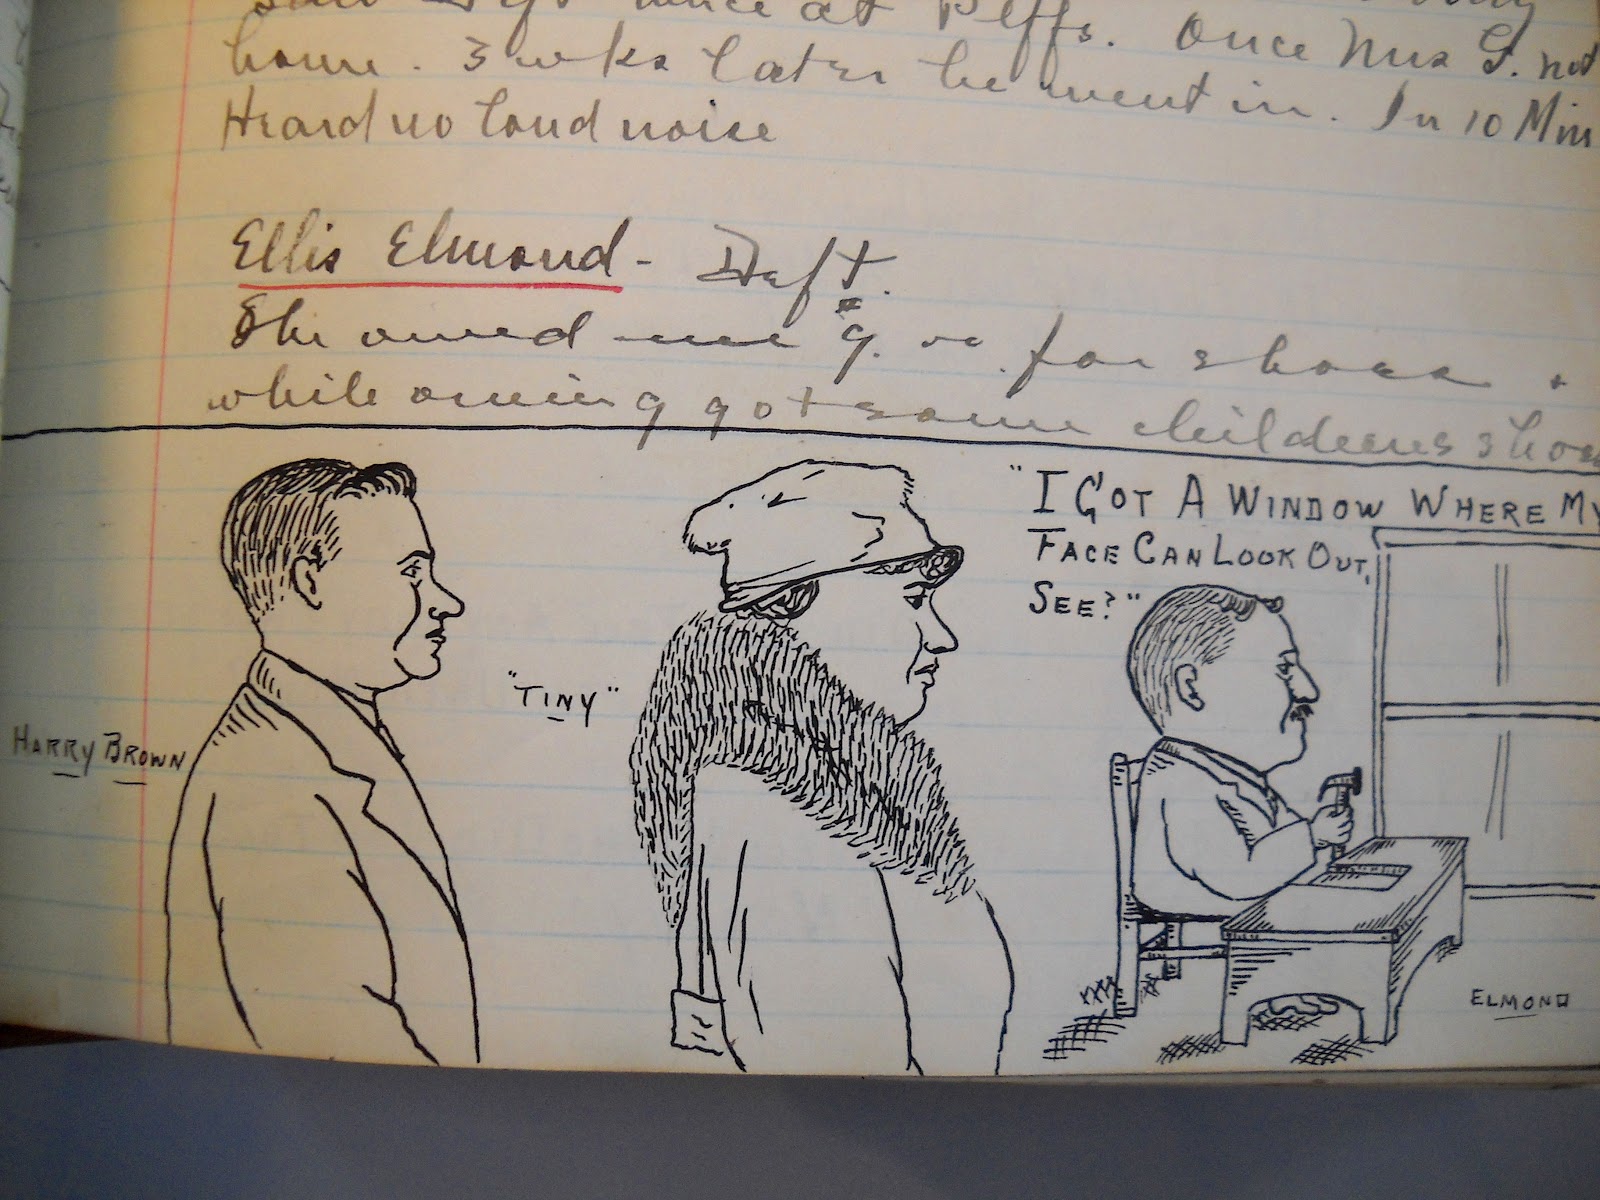 twice at Pelffs.
home. 3 wks later he went in. In 10 Min
Once Mrs G. not
Heard no loud noise
Ellis Elmond - Deft.
She owed me 9. for shoes &
while owing got some childrens shoes
"I GOT A WINDOW WHERE MY
FACE CAN LOOK OUT,
SEE?"
"TINY"
HARRY BROWN
ELMOND